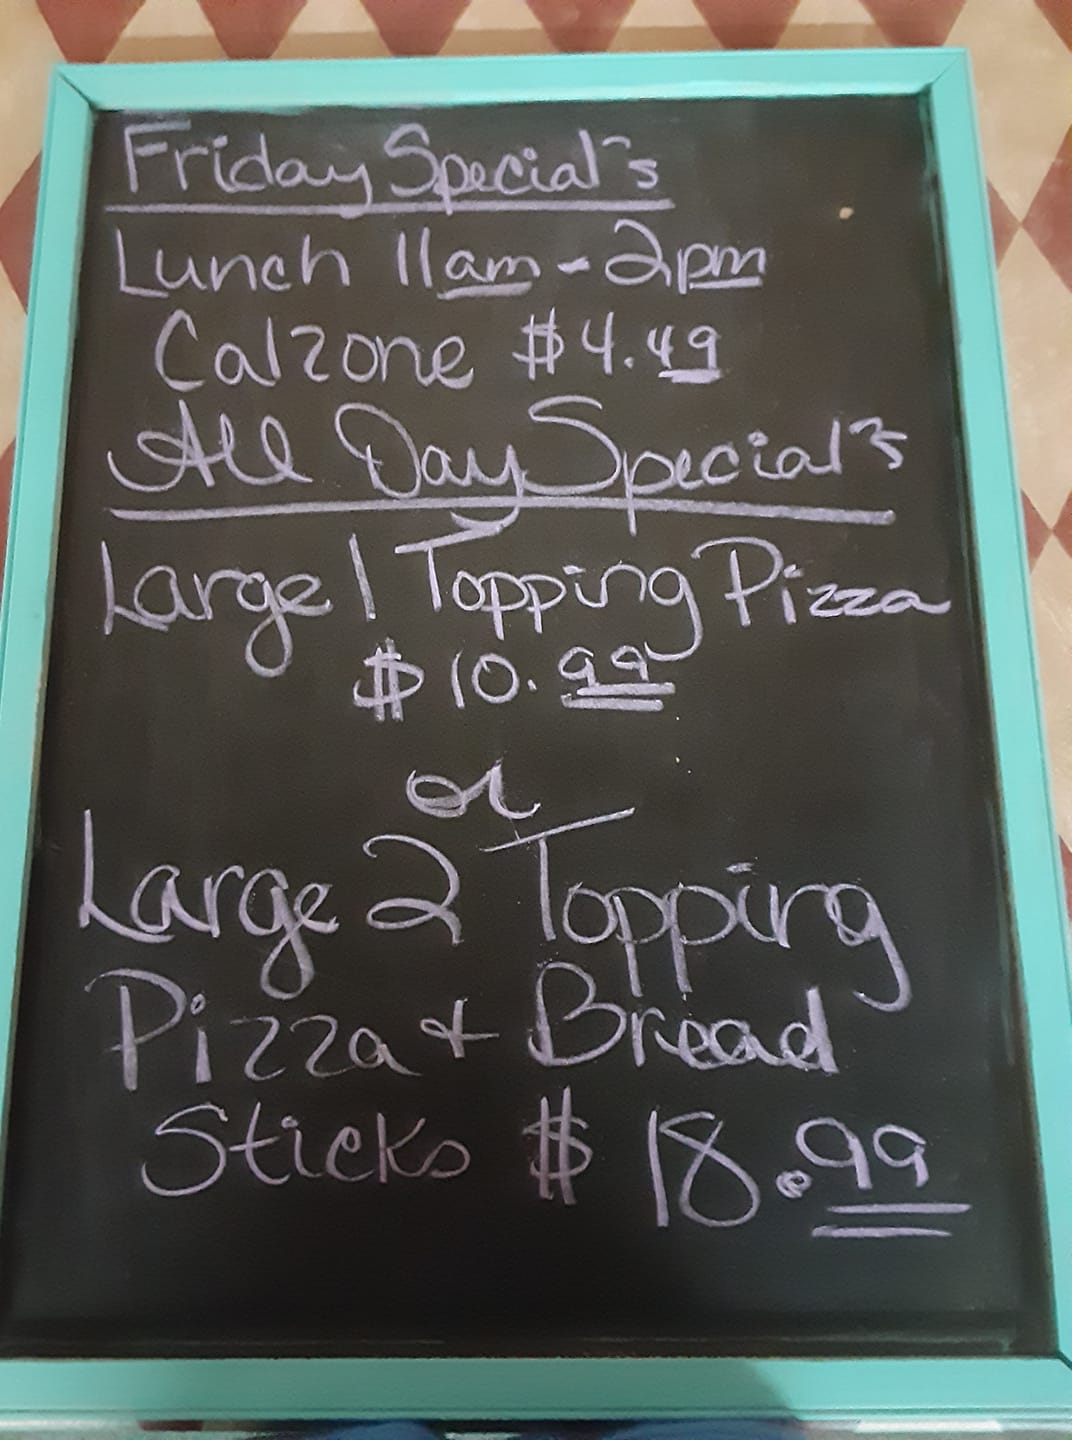 Friday Special's
Lunch 11am - 2pm
Calzone $4.49
All Day Special's
Large 1 Topping Pizza
$10.99
or
Large 2 Topping
Pizza & Bread
Sticks $18.99